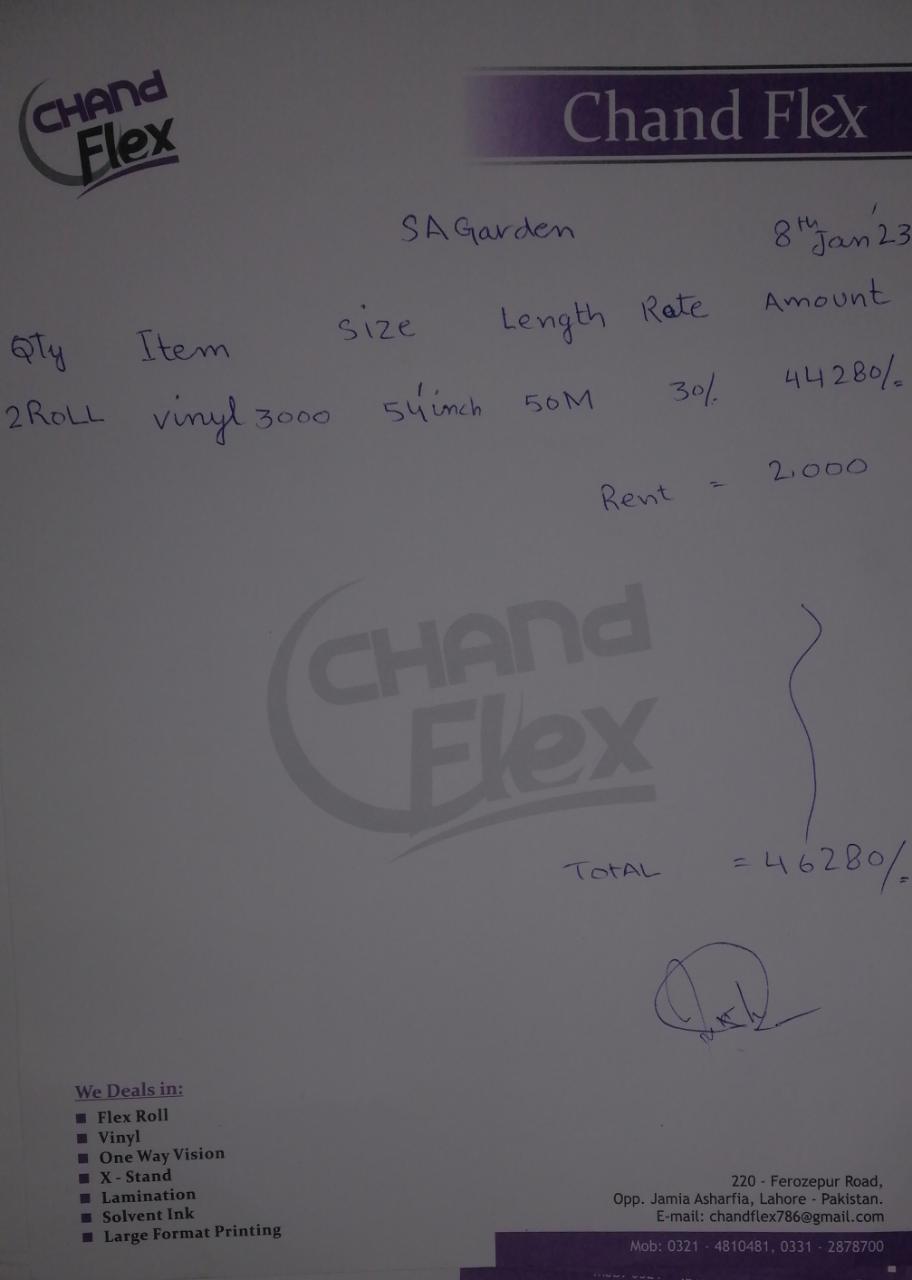 CHAND
Flex
Chand Flex
SA Garden 8th Jan'23
Qty Item Size Length Rate Amount
2 ROLL vinyl 3000 54" inch 50M 30/. 44280/.=
Rent = 2,000
CHAND
Flex
TOTAL = 46280/.=
We Deals in:
Flex Roll
Vinyl
One Way Vision
X - Stand
Lamination
Solvent Ink
Large Format Printing
220 - Ferozepur Road,
Opp. Jamia Asharfia, Lahore - Pakistan.
E-mail: chandflex786@gmail.com
Mob: 0321 - 4810481, 0331 - 2878700